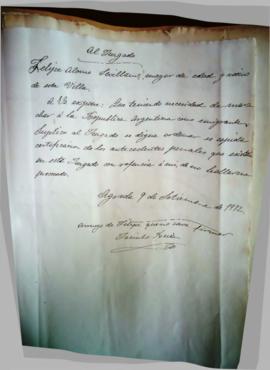 Al Juzgado
Felipe Alonso Sevillano, mayor de edad y vecino
de esta Villa,
A V. expone: Que teniendo necesidad de mar-
char á la República Argentina como emigrante,
Suplica al Juzgado se digne ordenar se expida
certificación de los antecedentes penales que existan
en este Juzgado con referencia á mi de no hallarme
procesado.
9 de Setiembre de 1912.
A ruego de Felipe que no sabe firmar